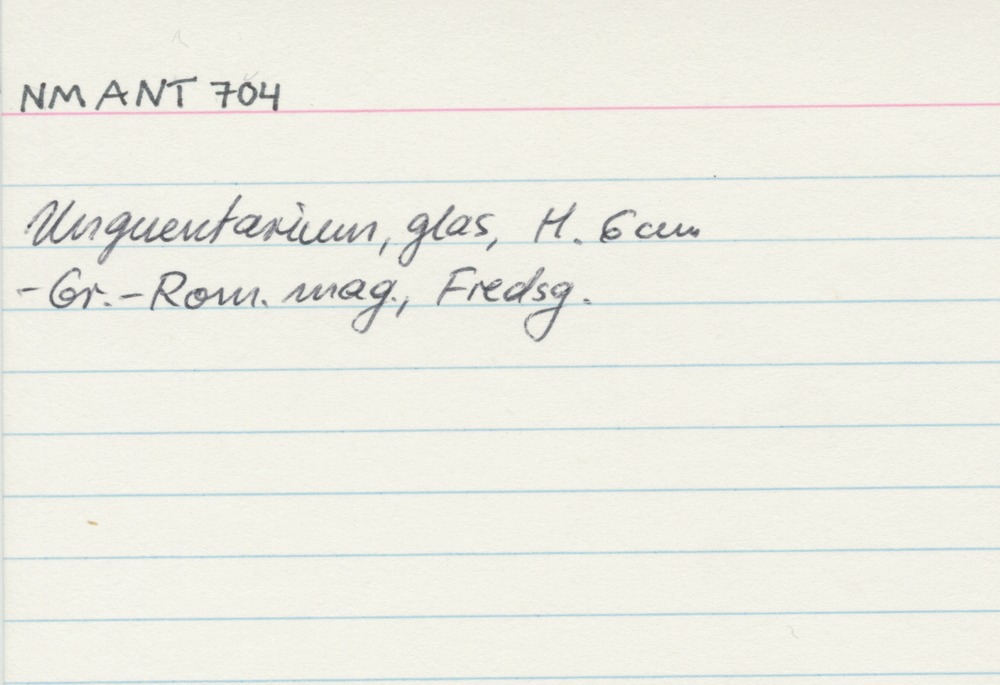 NM ANT 704
Unguentarium, glas, H. 6 cm
- Gr.-Rom. mag., Fredsg.